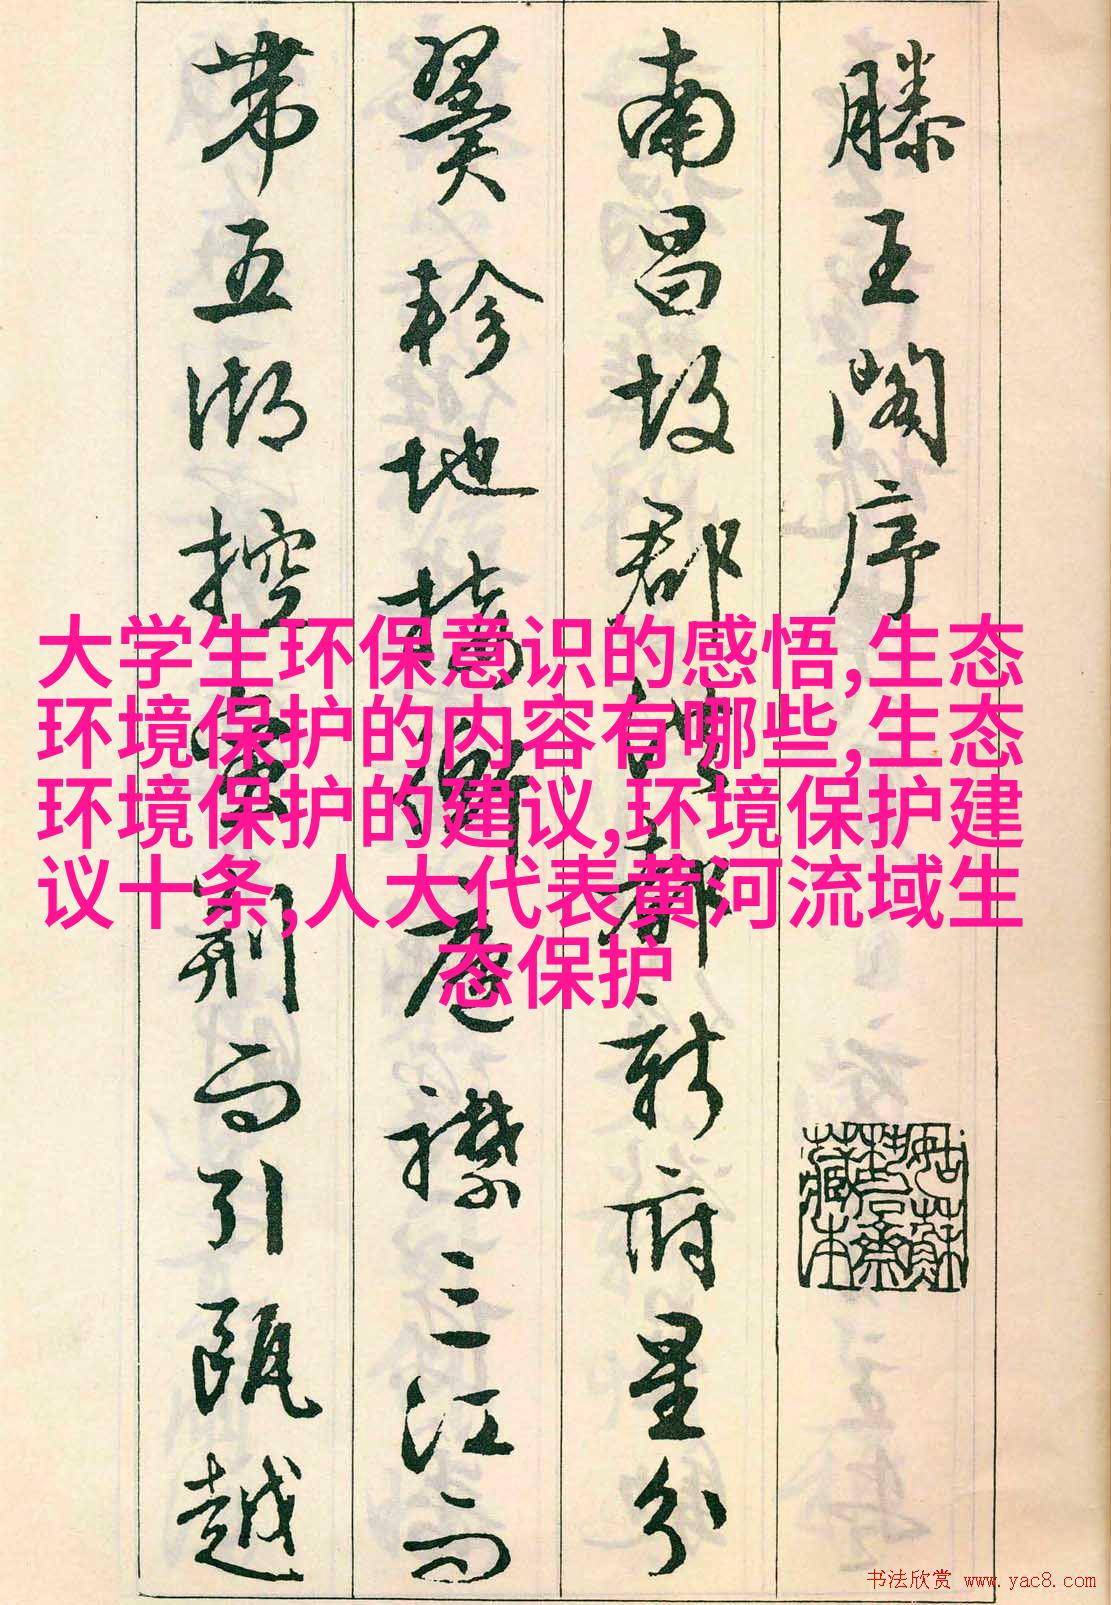 滕王閣序
南昌故郡洪都新府星分
翼軫地接衡廬襟三江而
帶五湖控蠻荊而引甌越
大学生环保意识的感悟,生态
环境保护的内容有哪些,生态
环境保护的建议,环境保护建
议十条,人大代表黄河流域生
态保护
书法欣赏 www.yac8.com